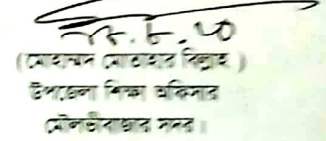 (মোহাম্মদ মোতাহার বিল্লাহ)
উপজেলা শিক্ষা অফিসার
মৌলভীবাজার সদর।